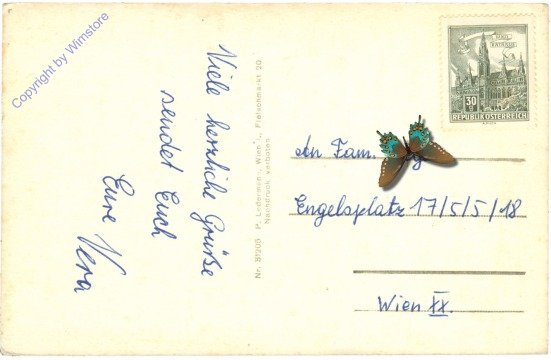 Copyright by Wimstore
Viele herzliche Grüße
sendet Euch
Eure Vera
Nr. 31205 P. Ledermann, Wien I., Fleischmarkt 20
Nachdruck verboten
WIEN
RATHAUS
30
REPUBLIK ÖSTERREICH
An Fam.
Engelsplatz 17/5/5/18
Wien XX.